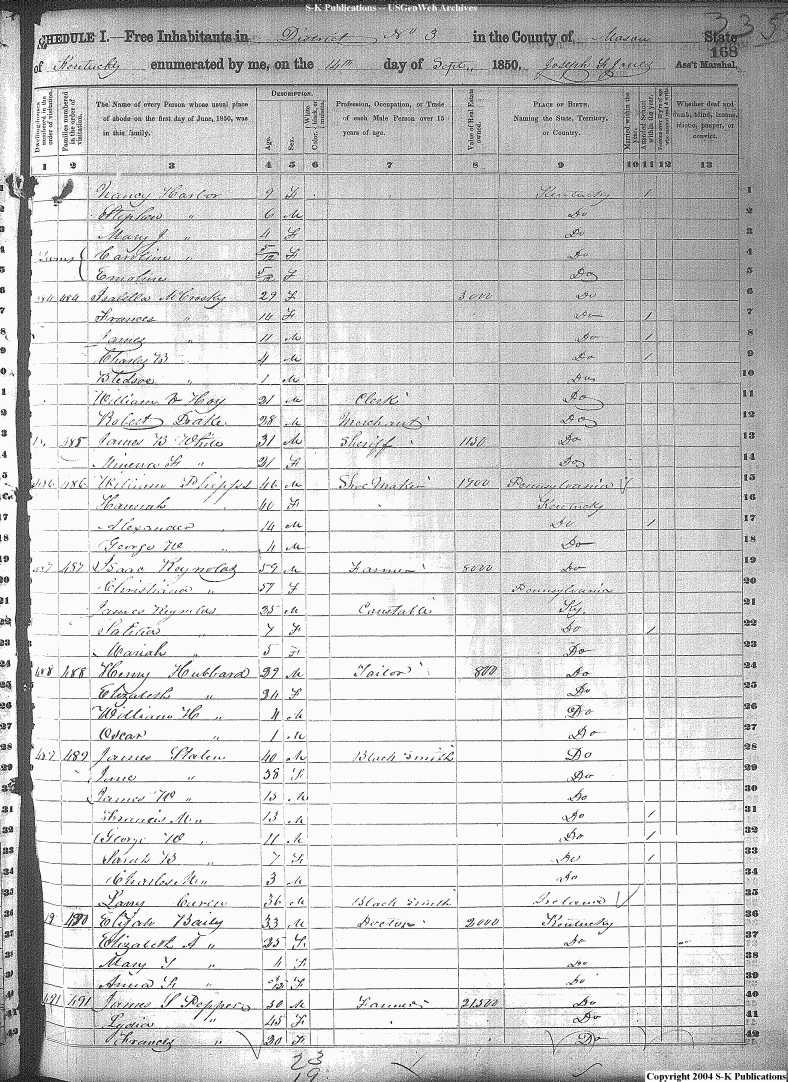 S-K Publications -- USGenWeb Archives
335
SCHEDULE I.—Free Inhabitants in District No 3 in the County of Mason State
168
of Kentucky enumerated by me, on the 14th day of Sept., 1850. Joseph Ass't Marshal.
Dwelling-houses numbered in the order of visitation.
Families numbered in the order of visitation.
The Name of every Person whose usual place of abode on the first day of June, 1850, was in this family.
Description.
Age.
Sex.
Color, White, black, or mulatto.
Profession, Occupation, or Trade of each Male Person over 15 years of age.
Value of Real Estate owned.
Place of Birth. Naming the State, Territory, or Country.
Married within the year.
Attended School within the year.
Whether deaf and dumb, blind, insane, idiotic, pauper, or convict.
1 2 3 4 5 6 7 8 9 10 11 12 13
1 Nancy Harlor 9 F Kentucky / 1
2 Stephen " 6 M Do 2
3 Mary J " 4 F Do 3
4 Twins Caroline " 5/12 F Do 4
5 Emoline 5/12 F Do 5
6 484 484 Isabella McCrosky 29 F 3000 Do 6
7 Frances " 14 F Do / 7
8 James " 11 M Do / 8
9 Charles B " 4 M Do / 9
10 Bledsoe " 1 M Do 10
11 William Hoy 21 M Clerk Do 11
12 Robert Drake 28 M Merchant Do 12
13 485 James B White 31 M Sheriff 1150 Do 13
14 Minerva F " 21 F Do 14
15 486 486 William Phipps 46 M Shoe Maker 1700 Pennsylvania 15
16 Hannah 40 F Kentucky 16
17 Alexander 14 M Do / 17
18 George W " 4 M Do 18
19 487 487 Isaac Reynolds 59 M Farmer 8000 Do 19
20 Christiana " 57 F Pennsylvania 20
21 James Reynolds 35 M Constable Ky. 21
22 Latitia " 7 F Do / 22
23 Mariah " 5 F Do 23
24 488 488 Henry Hubbard 29 M Tailor 800 Do 24
25 Elizabeth " 24 F Do 25
26 William H " 4 M Do 26
27 Oscar " 1 M Do 27
28 489 489 James Slaten 40 M Black Smith Do 28
29 Jane " 38 F Do 29
30 James W " 15 M Do 30
31 Francis M " 13 M Do / 31
32 George W " 11 M Do / 32
33 Sarah B " 7 F Do / 33
34 Charles M " 3 M Do 34
35 Larry Curen 36 M Black Smith Ireland 35
36 490 Elijah Baily 33 M Doctor 2000 Kentucky 36
37 Elizabeth A " 25 F Do 37
38 Mary " 4 F Do 38
39 Anna F " F Do 39
40 491 491 James S Pepper 50 M Farmer 21500 Do 40
41 Lydia " 45 F Do 41
42 Frances " 20 F Do 42
23
19
Copyright 2004 S-K Publications